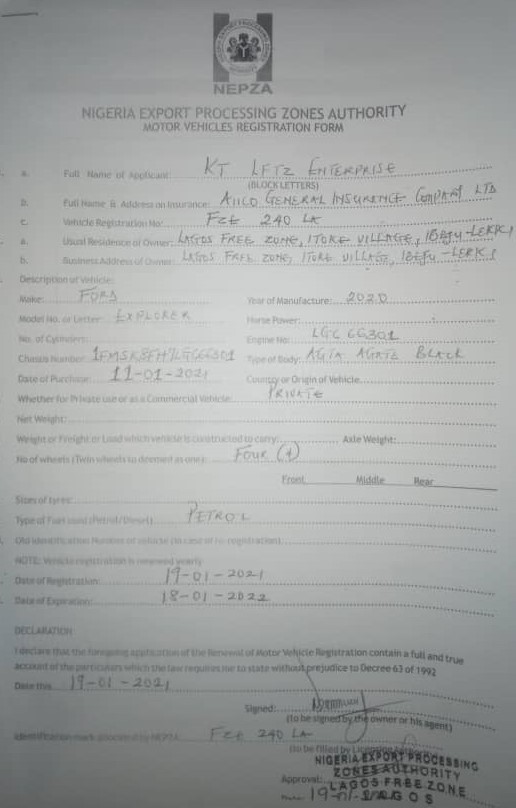 NEPZA
NIGERIA EXPORT PROCESSING ZONES AUTHORITY
MOTOR VEHICLES REGISTRATION FORM
a. Full Name of Applicant: KT LFTZ ENTERPRISE
(BLOCK LETTERS)
b. Full Name & Address on Insurance: AIICO GENERAL INSURANCE COMPANY LTD
c. Vehicle Registration No: FZE 240 LA
a. Usual Residence of Owner: LAGOS FREE ZONE, ITOKE VILLAGE, IBEJU-LEKKI
b. Business Address of Owner: LAGOS FREE ZONE, ITOKE VILLAGE, IBEJU-LEKKI
Description of Vehicle:
Make: FORD Year of Manufacture: 2020
Model No. or Letter: EXPLORER Horse Power:
No. of Cylinders: Engine No: LGC66301
Chassis Number: Type of Body: AGATE BLACK
Date of Purchase: 11-01-2021 Country or Origin of Vehicle
Whether for Private use or as a Commercial Vehicle: PRIVATE
Net Weight:
Weight or Freight or Load which vehicle is constructed to carry: Axle Weight:
No of wheels (Twin wheels to deemed as one): FOUR (4)
Front Middle Rear
Sizes of tyres:
Type of Fuel used (Petrol/Diesel) PETROL
Old identification Number of vehicle (in case of re-registration)
NOTE: Vehicle registration is renewed yearly
Date of Registration: 19-01-2021
Date of Expiration: 18-01-2022
DECLARATION
I declare that the foregoing application of the Renewal of Motor Vehicle Registration contain a full and true
account of the particulars which the law requires me to state without prejudice to Decree 63 of 1992
Date this 19-01-2021
Signed:
(to be signed by the owner or his agent)
Identification mark allocated by NEPZA: FZE 240 LA
(to be filled by Licensing Authority)
NIGERIA EXPORT PROCESSING
ZONES AUTHORITY
Approval: LAGOS FREE ZONE
19-01- LAGOS